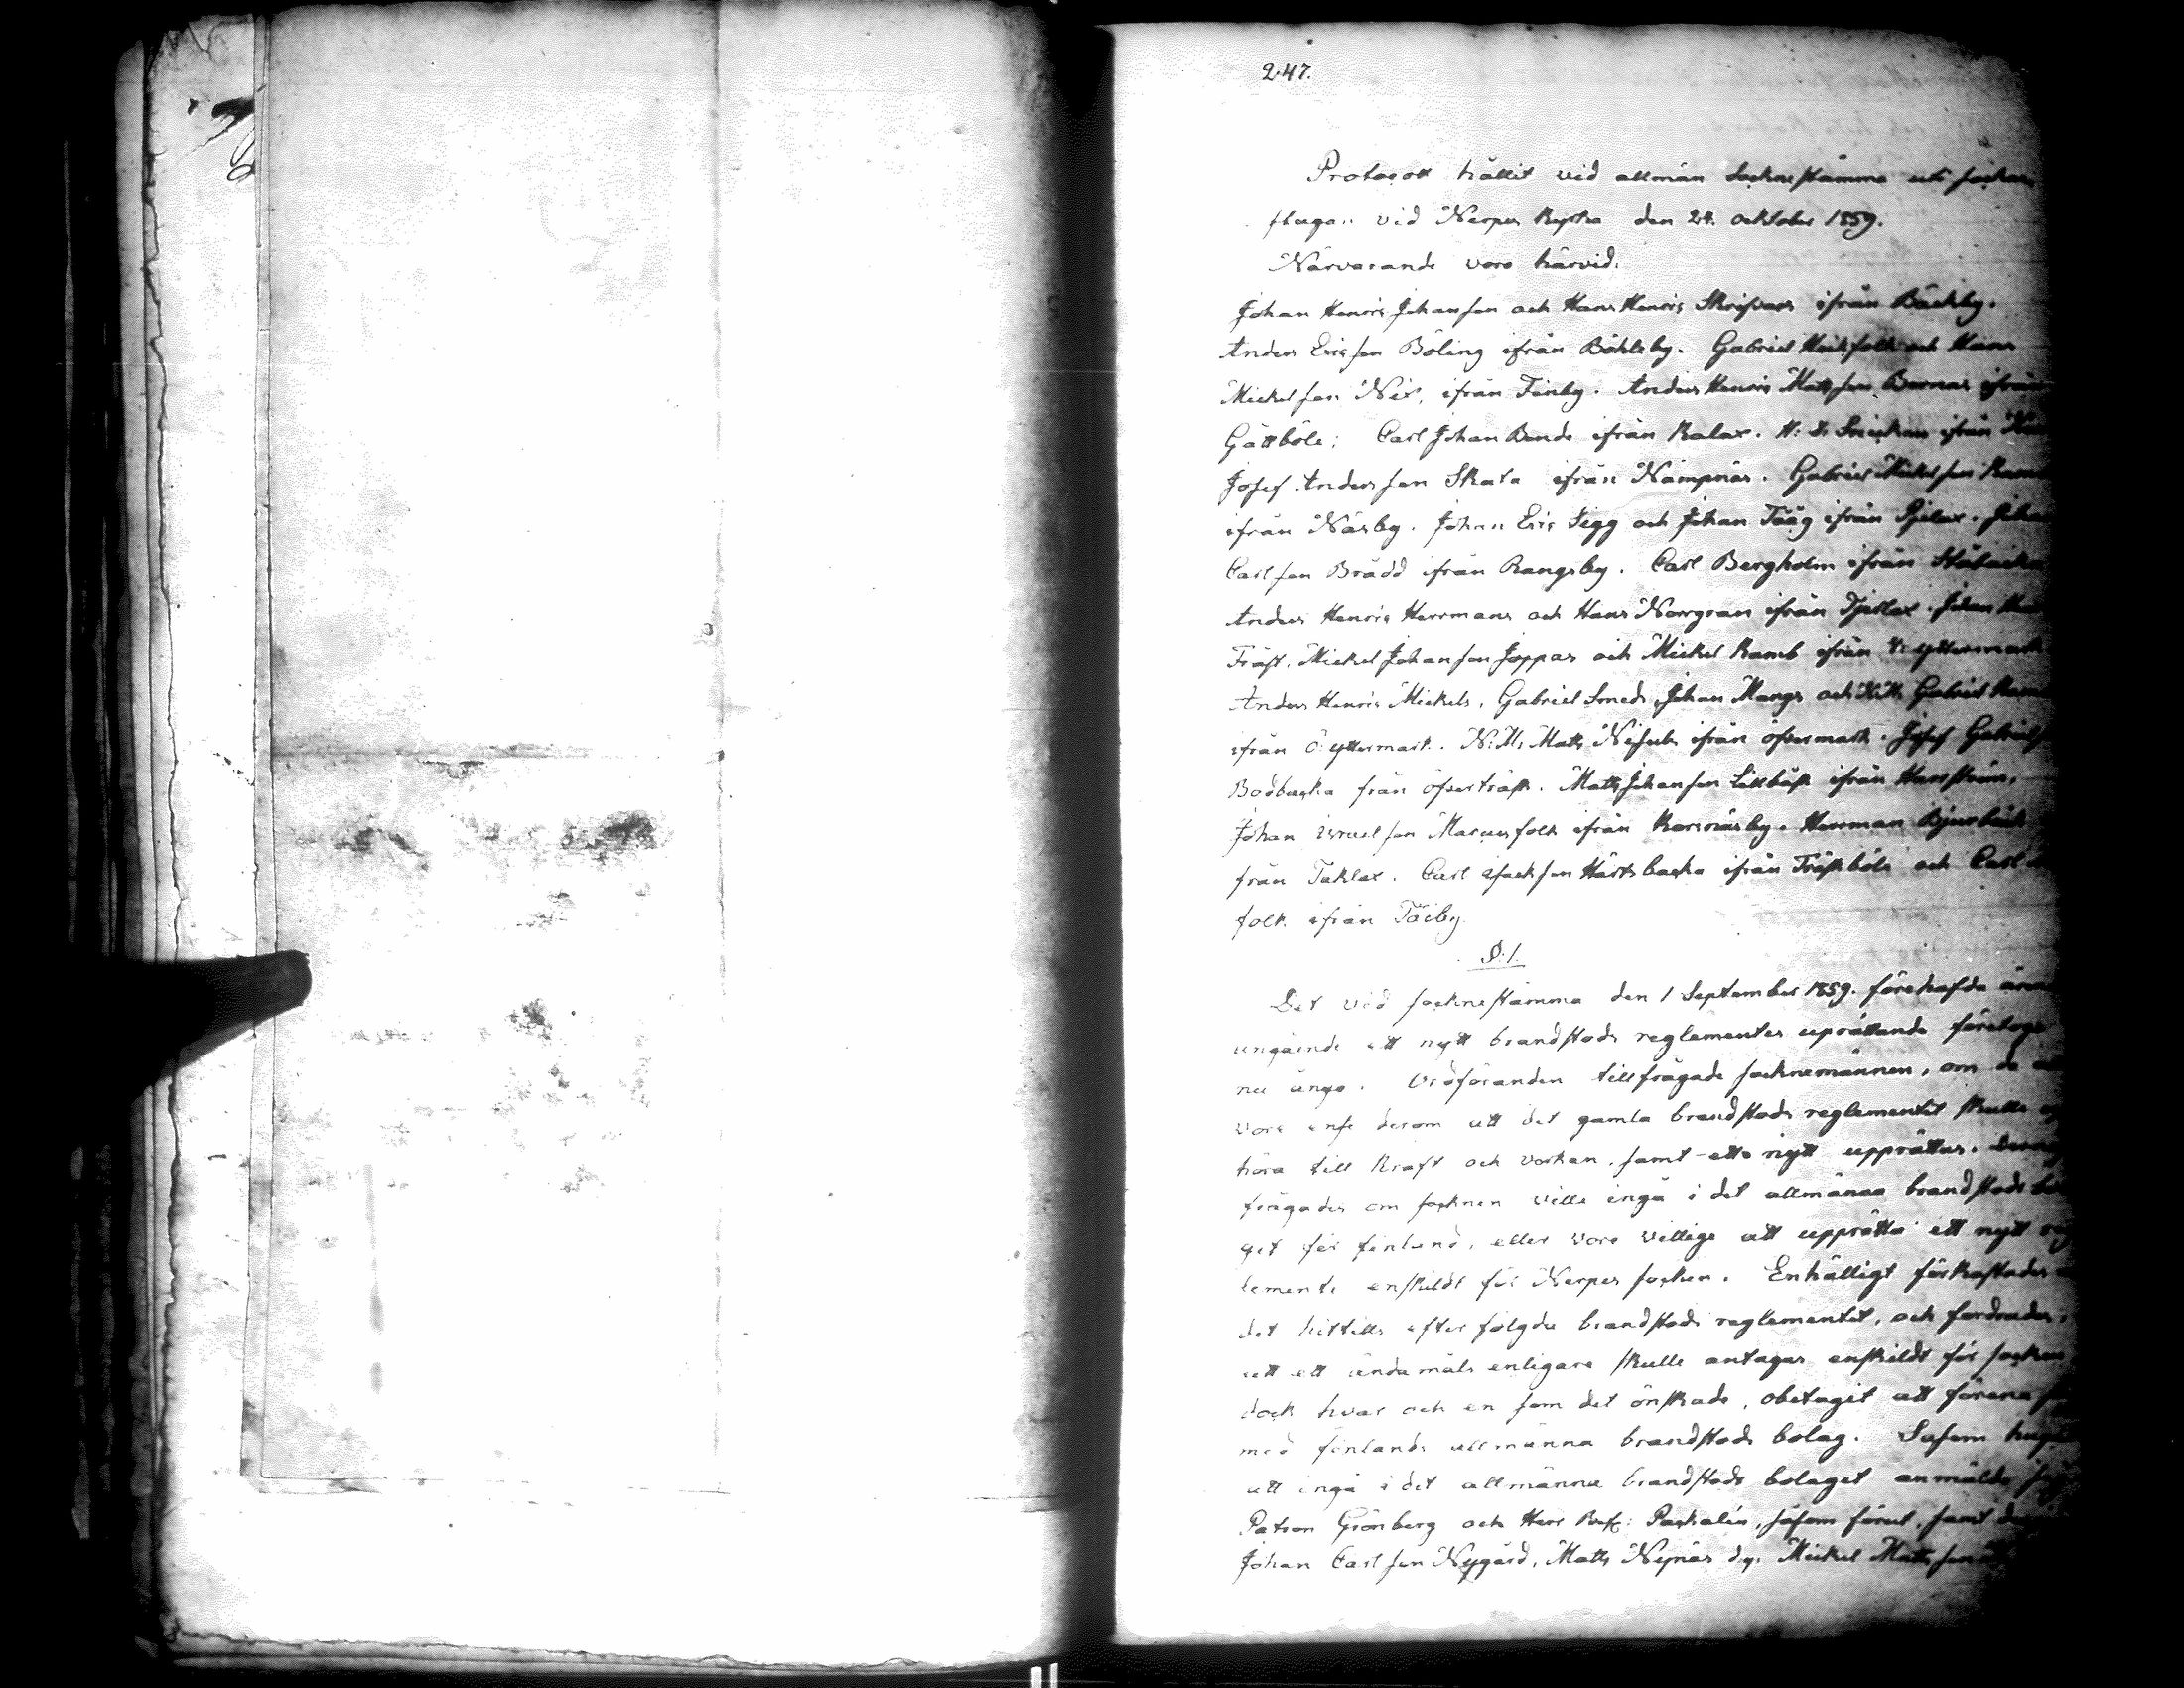 247.
Protocoll hållit vid allmän Sockne stämma uti socken
stugan vid Nerpes Kyrka den 24. october 1859.
Närvarande voro härvid.
Johan Henric Johansson och Hans Henric Skrifvars ifrån Bäckby.
Anders Ericsson Böling ifrån Böhleby. Gabriel Heickfolk och Hans
Mickelsson Nix, ifrån Finby. Anders Henric Mattsson Bernas ifrån
Gåttböle; Carl Johan Bende ifrån Kalax. N: d:
Josef Andersson Skata ifrån Nämpnäs. Gabriel Mickelsson
ifrån Näsby. Johan Eric Legg och Johan Tååg ifrån Pjelax. Johan
Carlsson Brädd ifrån Rangsby. Carl Bergholm ifrån
Anders Henric Herrmans och Hans Norrgran ifrån Tjerlax. Johan
Träsk. Mickel Johansson Joppas och Mickel Kamb ifrån N: yttermark
Anders Henric Mickels, Gabriel Smeds, Johan Mangs och Gabriel
ifrån Ö: yttermark. N: M: Matts Nisula ifrån öfvermark. Josef Gabriels
Bodbacka från öfverträsk. Matts Johansson Lillbäck ifrån Harrström.
Johan israelsson Marcusfolk ifrån Korsnäsby. Herrman Bjurbäck
från Taklax. Carl isacksson Härtsbacka ifrån Träskböle och Carl
folk ifrån Töjby.
§. 1.
Det vid socknestämma den 1 September 1859. förehafda ären
angående ett nytt brandstods reglementes uprättande företogs
nu ånyo. Ordföranden tillfrågade socknemännen, om de
vore ense derom att det gamla brandstods reglementet skulle up
höra till kraft och verkan, samt ett nytt upprättas.
frågades om socknen ville ingå i det allmänna brandstods bola
get för finland, eller vore villige att upprätta ett nytt reg
lemente enskildt för Nerpes socken. Enhälligt förkastades
det hittills efterfölgda brandstods reglementet, och fordrades,
att ett ändamåls enligare skulle antagas enskildt för socken
dock hvar och en som det önskade, obetagit att förena sig
med finlands allmänna brandstods bolag. Såsom hugade
att ingå i det allmänna brandstods bolaget anmälde sig
Patron Grönberg och Herr Paskalin, såsom förut, samt
Johan Carlsson Nygård, Matts Nynäs dy. Mickel Mattsson